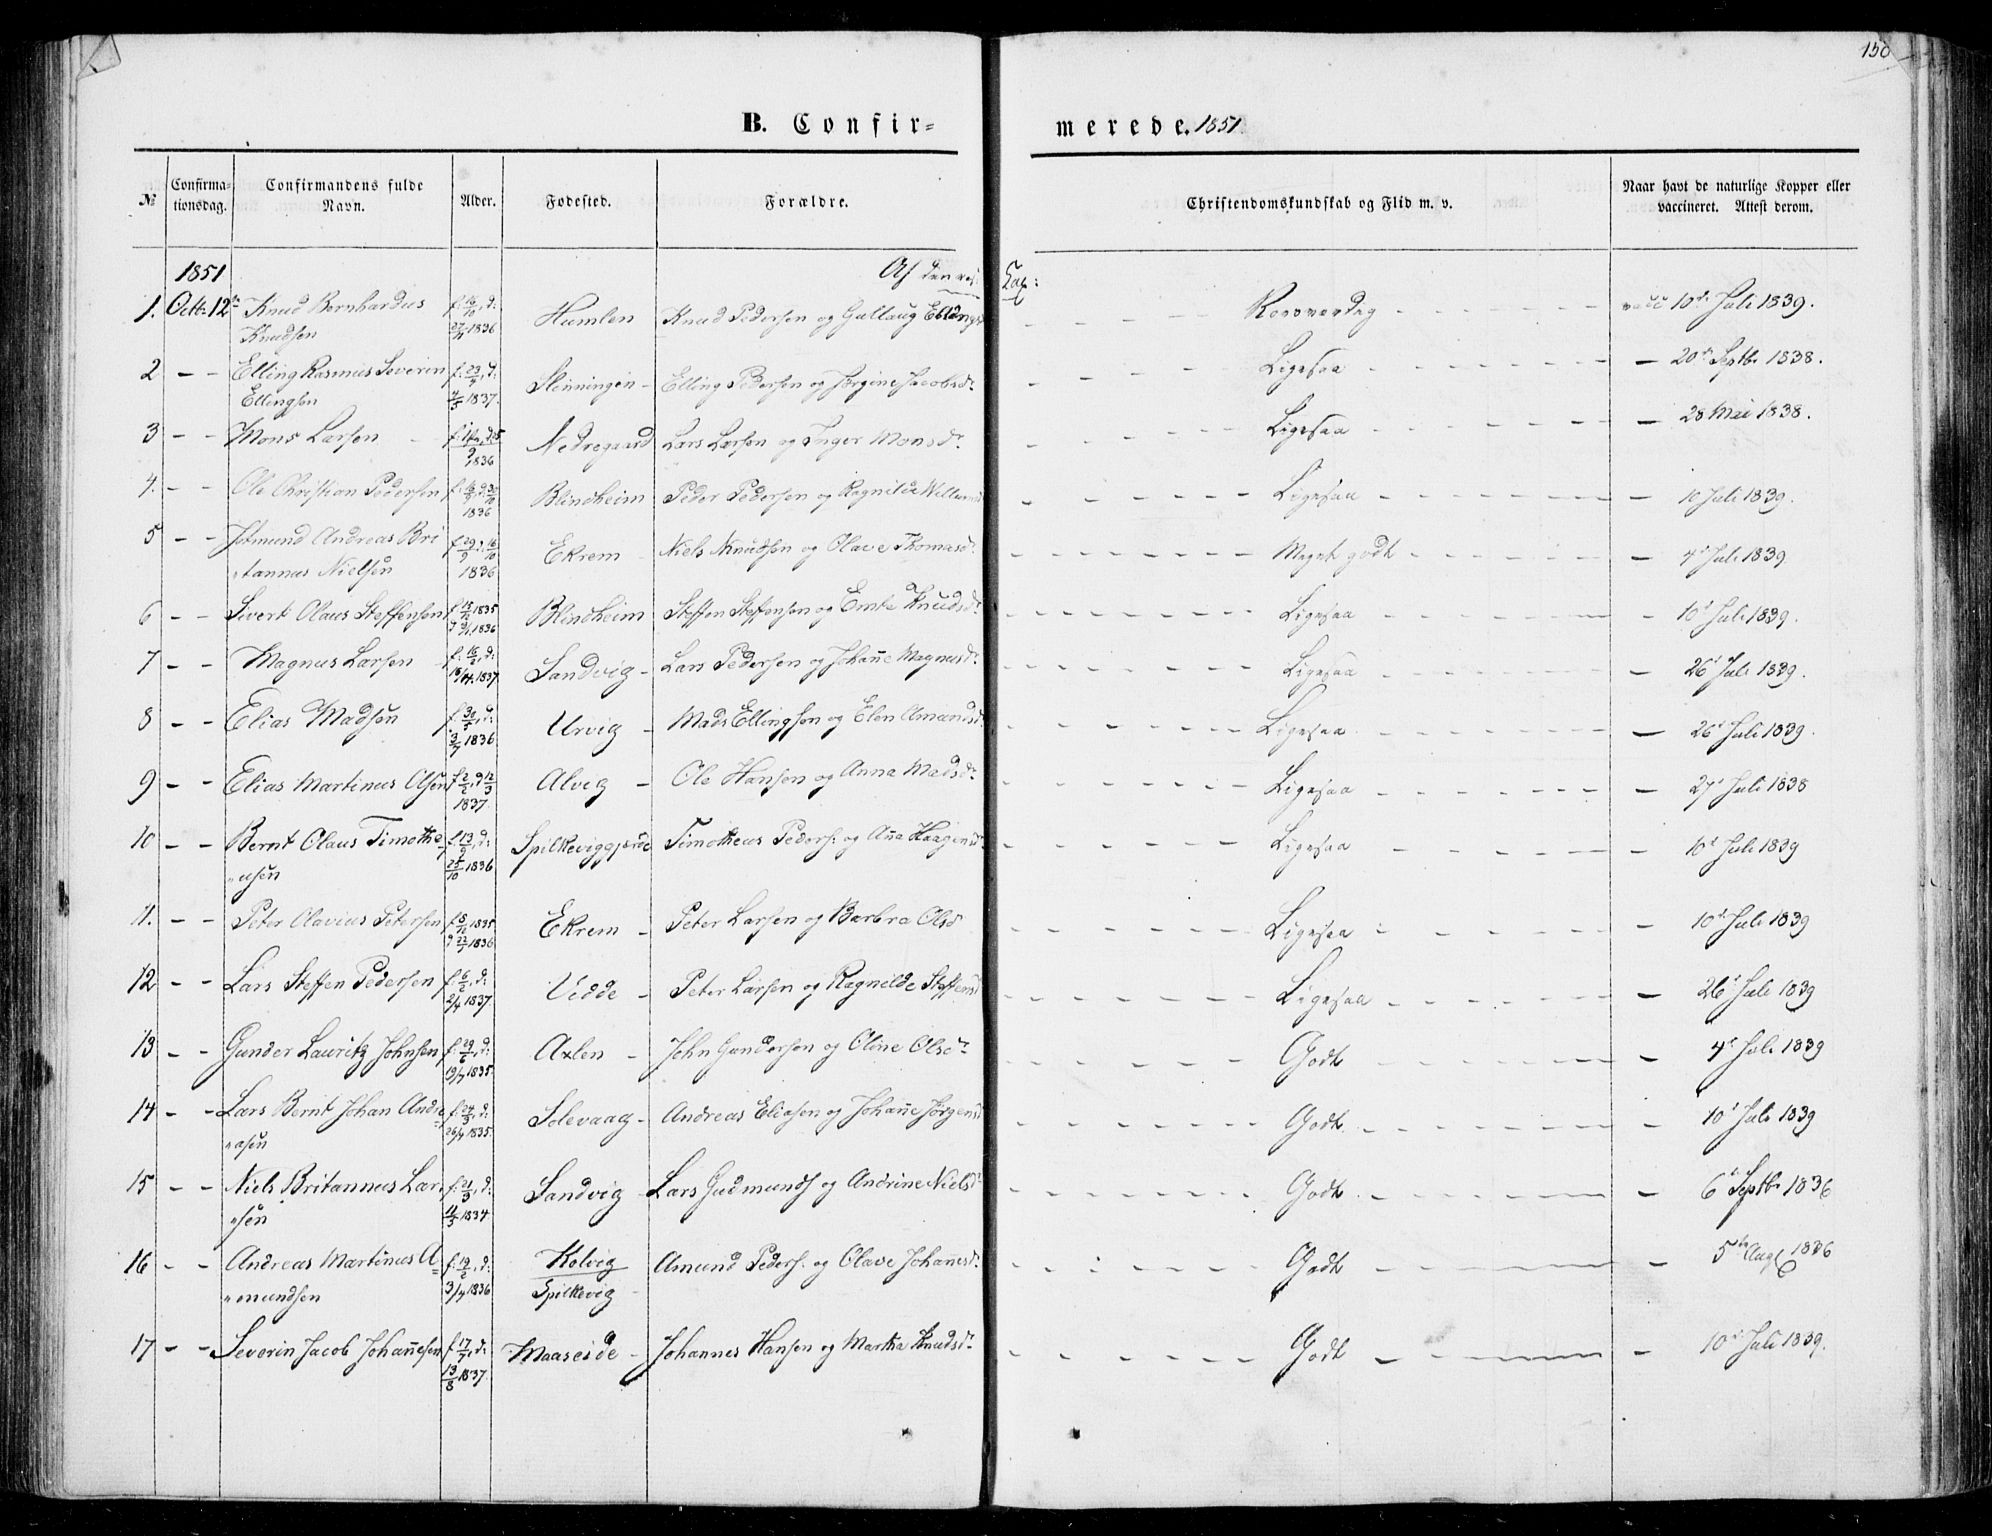 150
B. Confir=
merede. 1851
№
Confirma=
tionsdag.
Confirmandens fulde
Navn.
Alder.
Fødested.
Forældre.
Christendomskundskab og Flid m. v.
Naar havt de naturlige Kopper eller
vaccineret. Attest derom.
1851
Af den
1. Octb: 12te Knud Bernhardus f: 16/10, d: Humlen Knud Pedersen og Gullaug - - Rosværdig - - vacc 10de Juli 1839.
Knudsen 27/11 1836
2 - - Elling Rasmus Severin f: 23/4, d: Slinningen - Elling Pedersen og Jørgine Jacobsdr - - Ligesaa - - - 20de Septbr 1838.
Ellingsen 4/5 1837.
3 - - Mons Larsen Nedregaard Lars Larsen og Inger Monsdr. - - Ligesaa - - - 28 Mai 1838.
9 1836
4. - - Ole Christian Pedersen Blindheim Peder Pedersen og Ragnilde - - Ligesaa - - - 10 Juli 1839.
1836
5 - - Andreas Bri f: 29/9, d: 16/10 Ekrem - Niels Knudsen og Olave Thomasdr. - - Meget godt - - - 4de Juli 1839
"tannus Nielsen 1836
6 - - Sivert Olaus Steffensen f: 13/12 1835 Blindheim Steffen Steffensen og Emte Knudsdr - - Ligesaa - - - 10de Juli 1839.
d 9/1 1836
7 - - Magnus Larsen f: 16/2, d: Sandvig - Lars Pedersen og Johanne Magnusdr - - Ligesaa - - - 26de Juli 1839.
16/4 1837
8 - - Elias Madsen f: 30/5, d: Urvig - Mads Ellingsen og Elen Amundsdr - - Ligesaa - - - 26de Juli 1839.
3/7 1836
9 - - Elias Martinus Olsen f: 2/2, d 12/3 Alvig - Ole Hansen og Anna Madsdr - - Ligesaa - - - 27de Juli 1838
1837.
10 - - Bernt Olaus Timothe f 13/9, d: Spilkeviggjerde Timotheus Peders: og Ana Haagensdr - - Ligesaa - - - 10de Juli 1839
"usen 25/10 1836
11. - - Peter Olavius Petersen f 8/12 1835. Ekrem - Peter Larsen og Barbra Olsd - - Ligesaa - - - 10de Juli 1839
d 22/1 1836
12 - - Lars Steffen Pedersen f: 6/2, d: Vedde - Peter Larsen og Ragnilde Steffensd - - Ligesaa - - - 26de Juli 1839
2/4 1837
13 - - Gunder Lauritz Johnsen f: 29/6, d: Axlen - John Gundersen og Oline Olsdr - - Godt - - - 4de Juli 1839
19/7 1835.
14 - - Lars Bernt Johan Andre= f: 24/3, d: Solevaag - Andreas Eliasen og Johanne Jørgensd - - Godt - - - 10de Juli 1839
"asen 26/4 1835.
15 - - Niels Britannus Lar= f: 21/3, d: Sandvig - Lars Gudmunds og Andrine Nielsdr - - Godt - - - 6de Septbr 1836
"sen 11/5 1834
16 - - Andreas Martinus A= f: 19/2, d: Kolvig Amund Peders. og Olave Johannesdr. - - Godt - - - 5te Aug 1836
"mundsen 3/4 1836 Spilkevig -
17 - - Severin Jacob Johannesen f: 17/7, d: Maaseide - Johannes Hansen og Martha Knudsdr - - Godt - - - 10de Juli 1839.
13/8 1837.